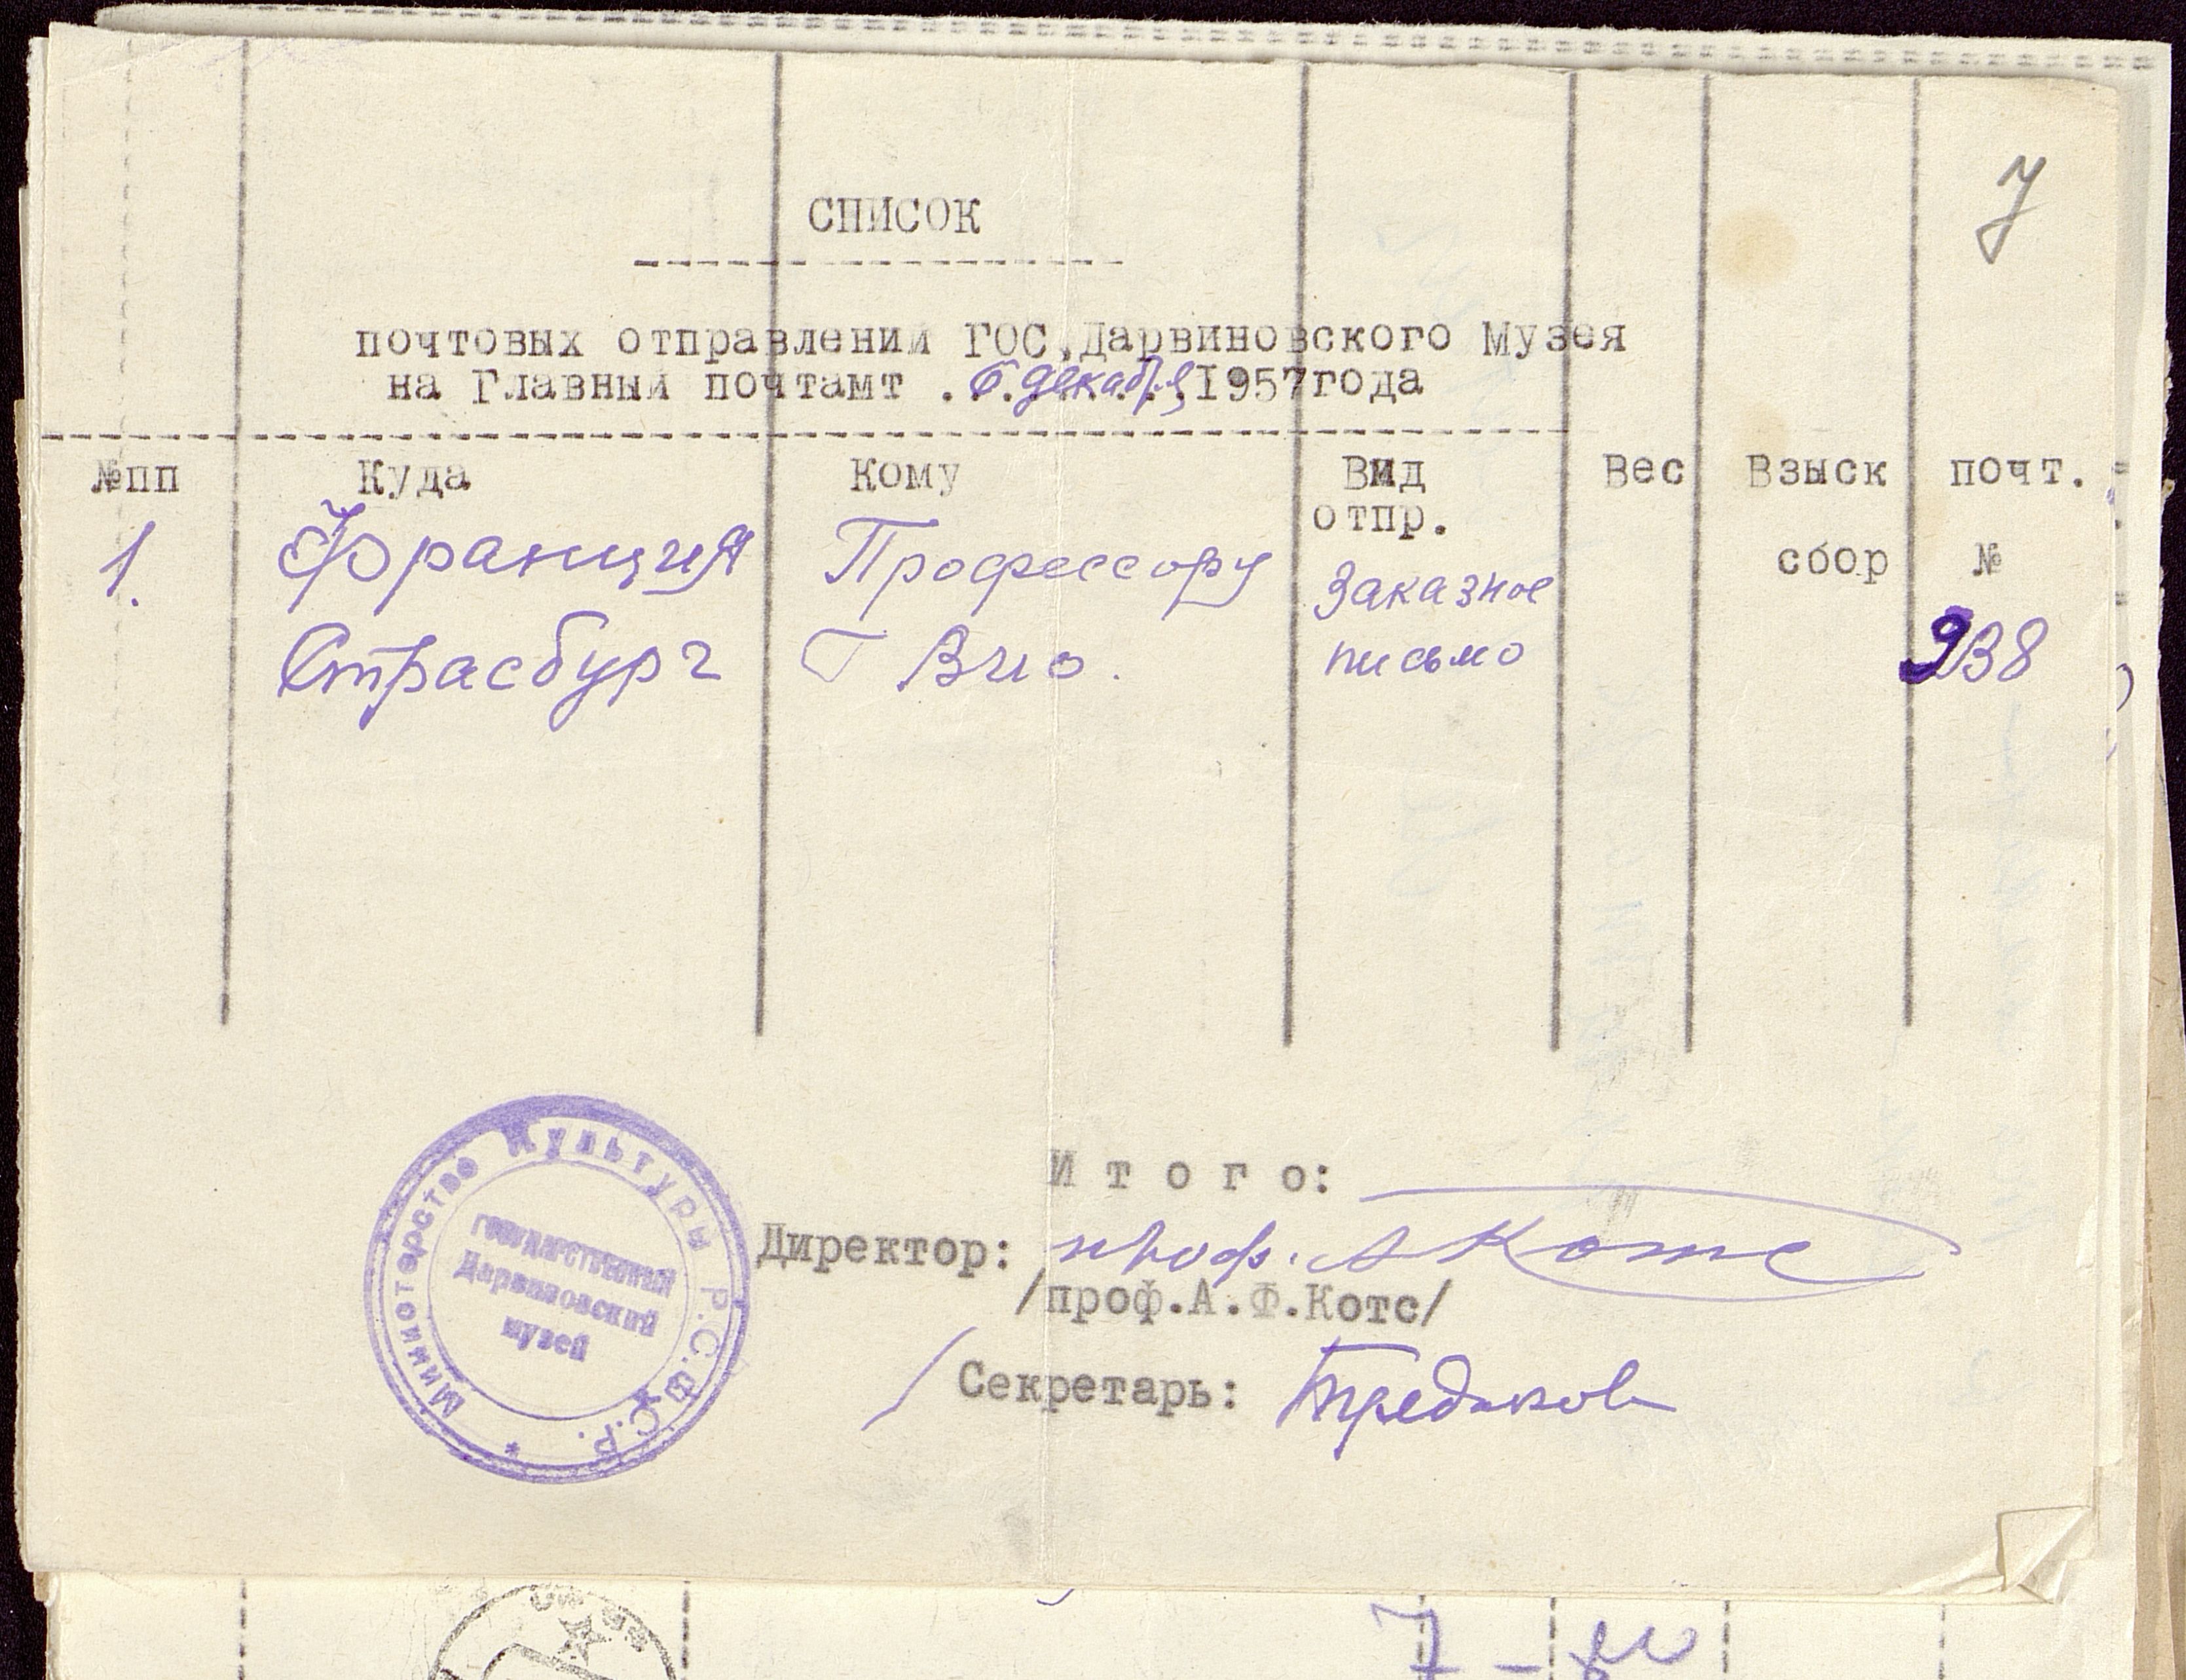 7
СПИСОК
почтовых отправлений ГОС.Дарвиновского Музея
на Главный почтамт . 6 декабря 1957года
№пп Куда Кому Вид отпр. Вес Взыск сбор почт. №
1. Франция Профессору Заказное
Страсбург Г Вио. письмо 938
Итого:
Директор: проф. А Котс
/проф.А.Ф.Котс/
Секретарь:
Министерство Культуры Р.С.Ф.С.Р. *
ГОСУДАРСТВЕННЫЙ
Дарвиновский
музей
7 -